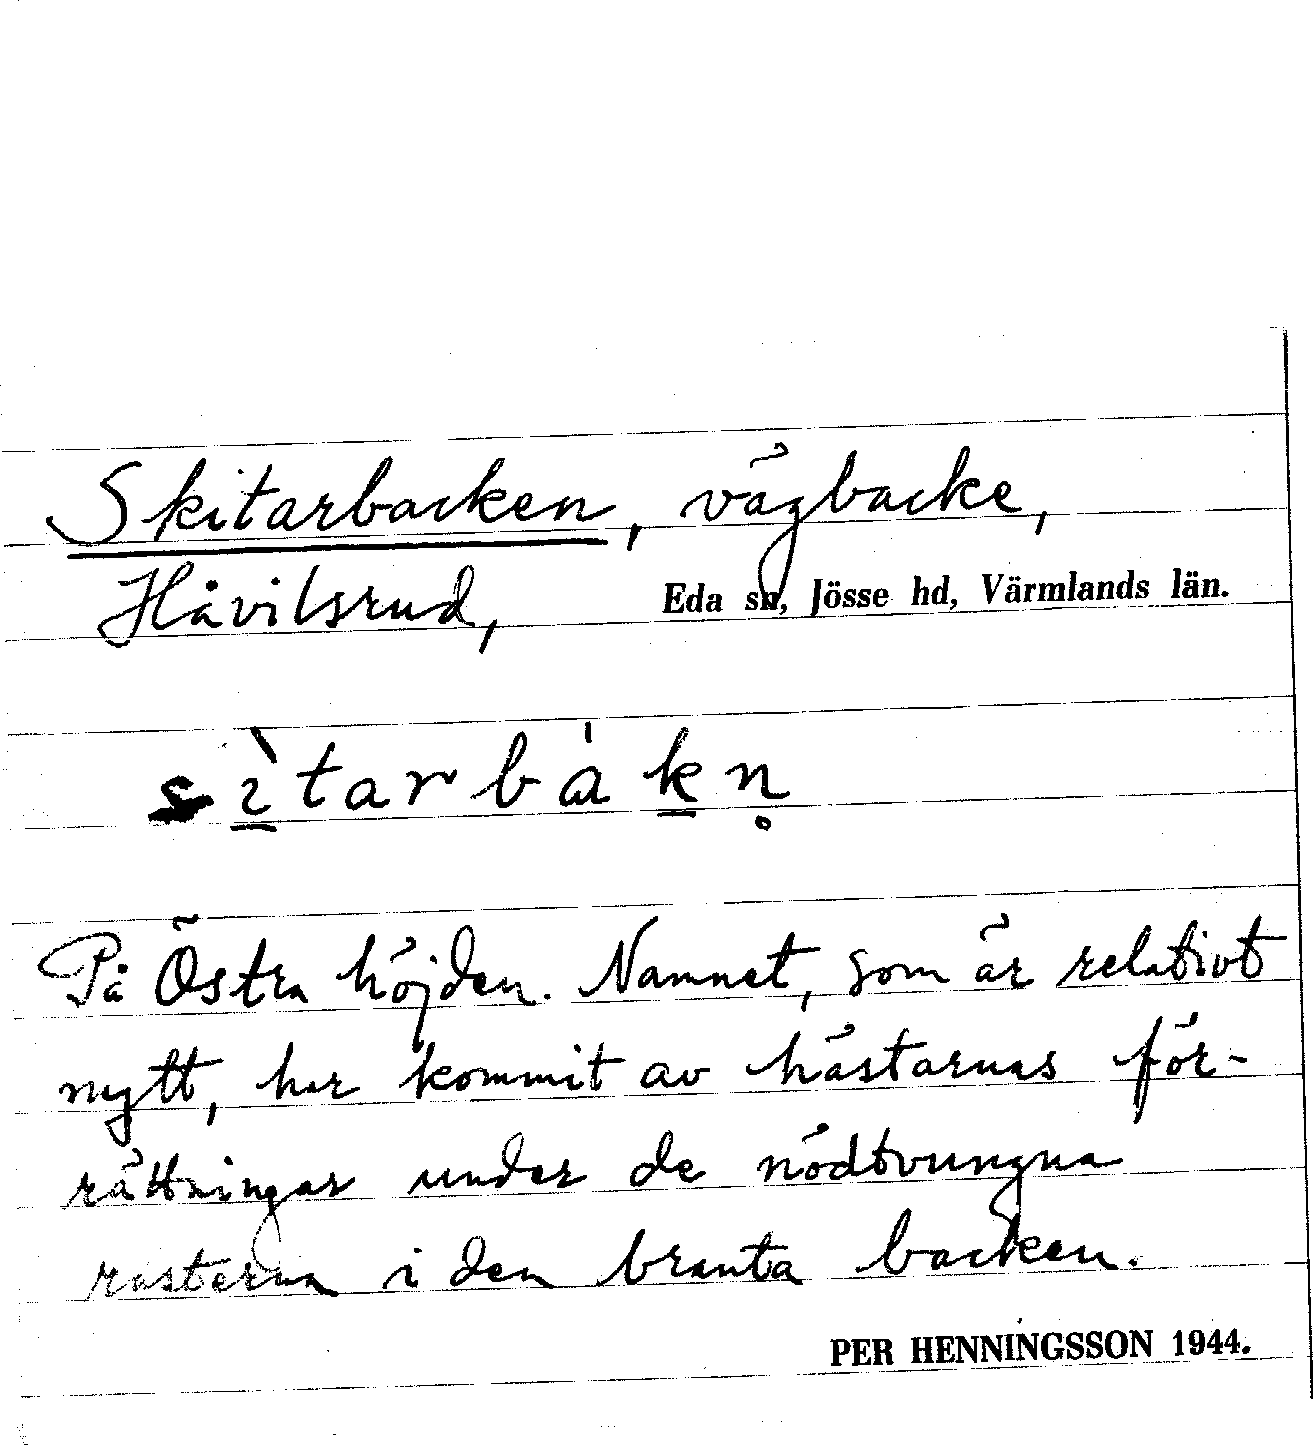 Skitarbacken, vägbacke,
Håvilsrud, Eda sn, Jösse hd, Värmlands län.
sìtarbàkn̥
På Östra höjden. Namnet, som är relativt
nytt, har kommit av hästarnas för-
rättningar under de nödtvungna
rasterna i den branta backen.
PER HENNINGSSON 1944.